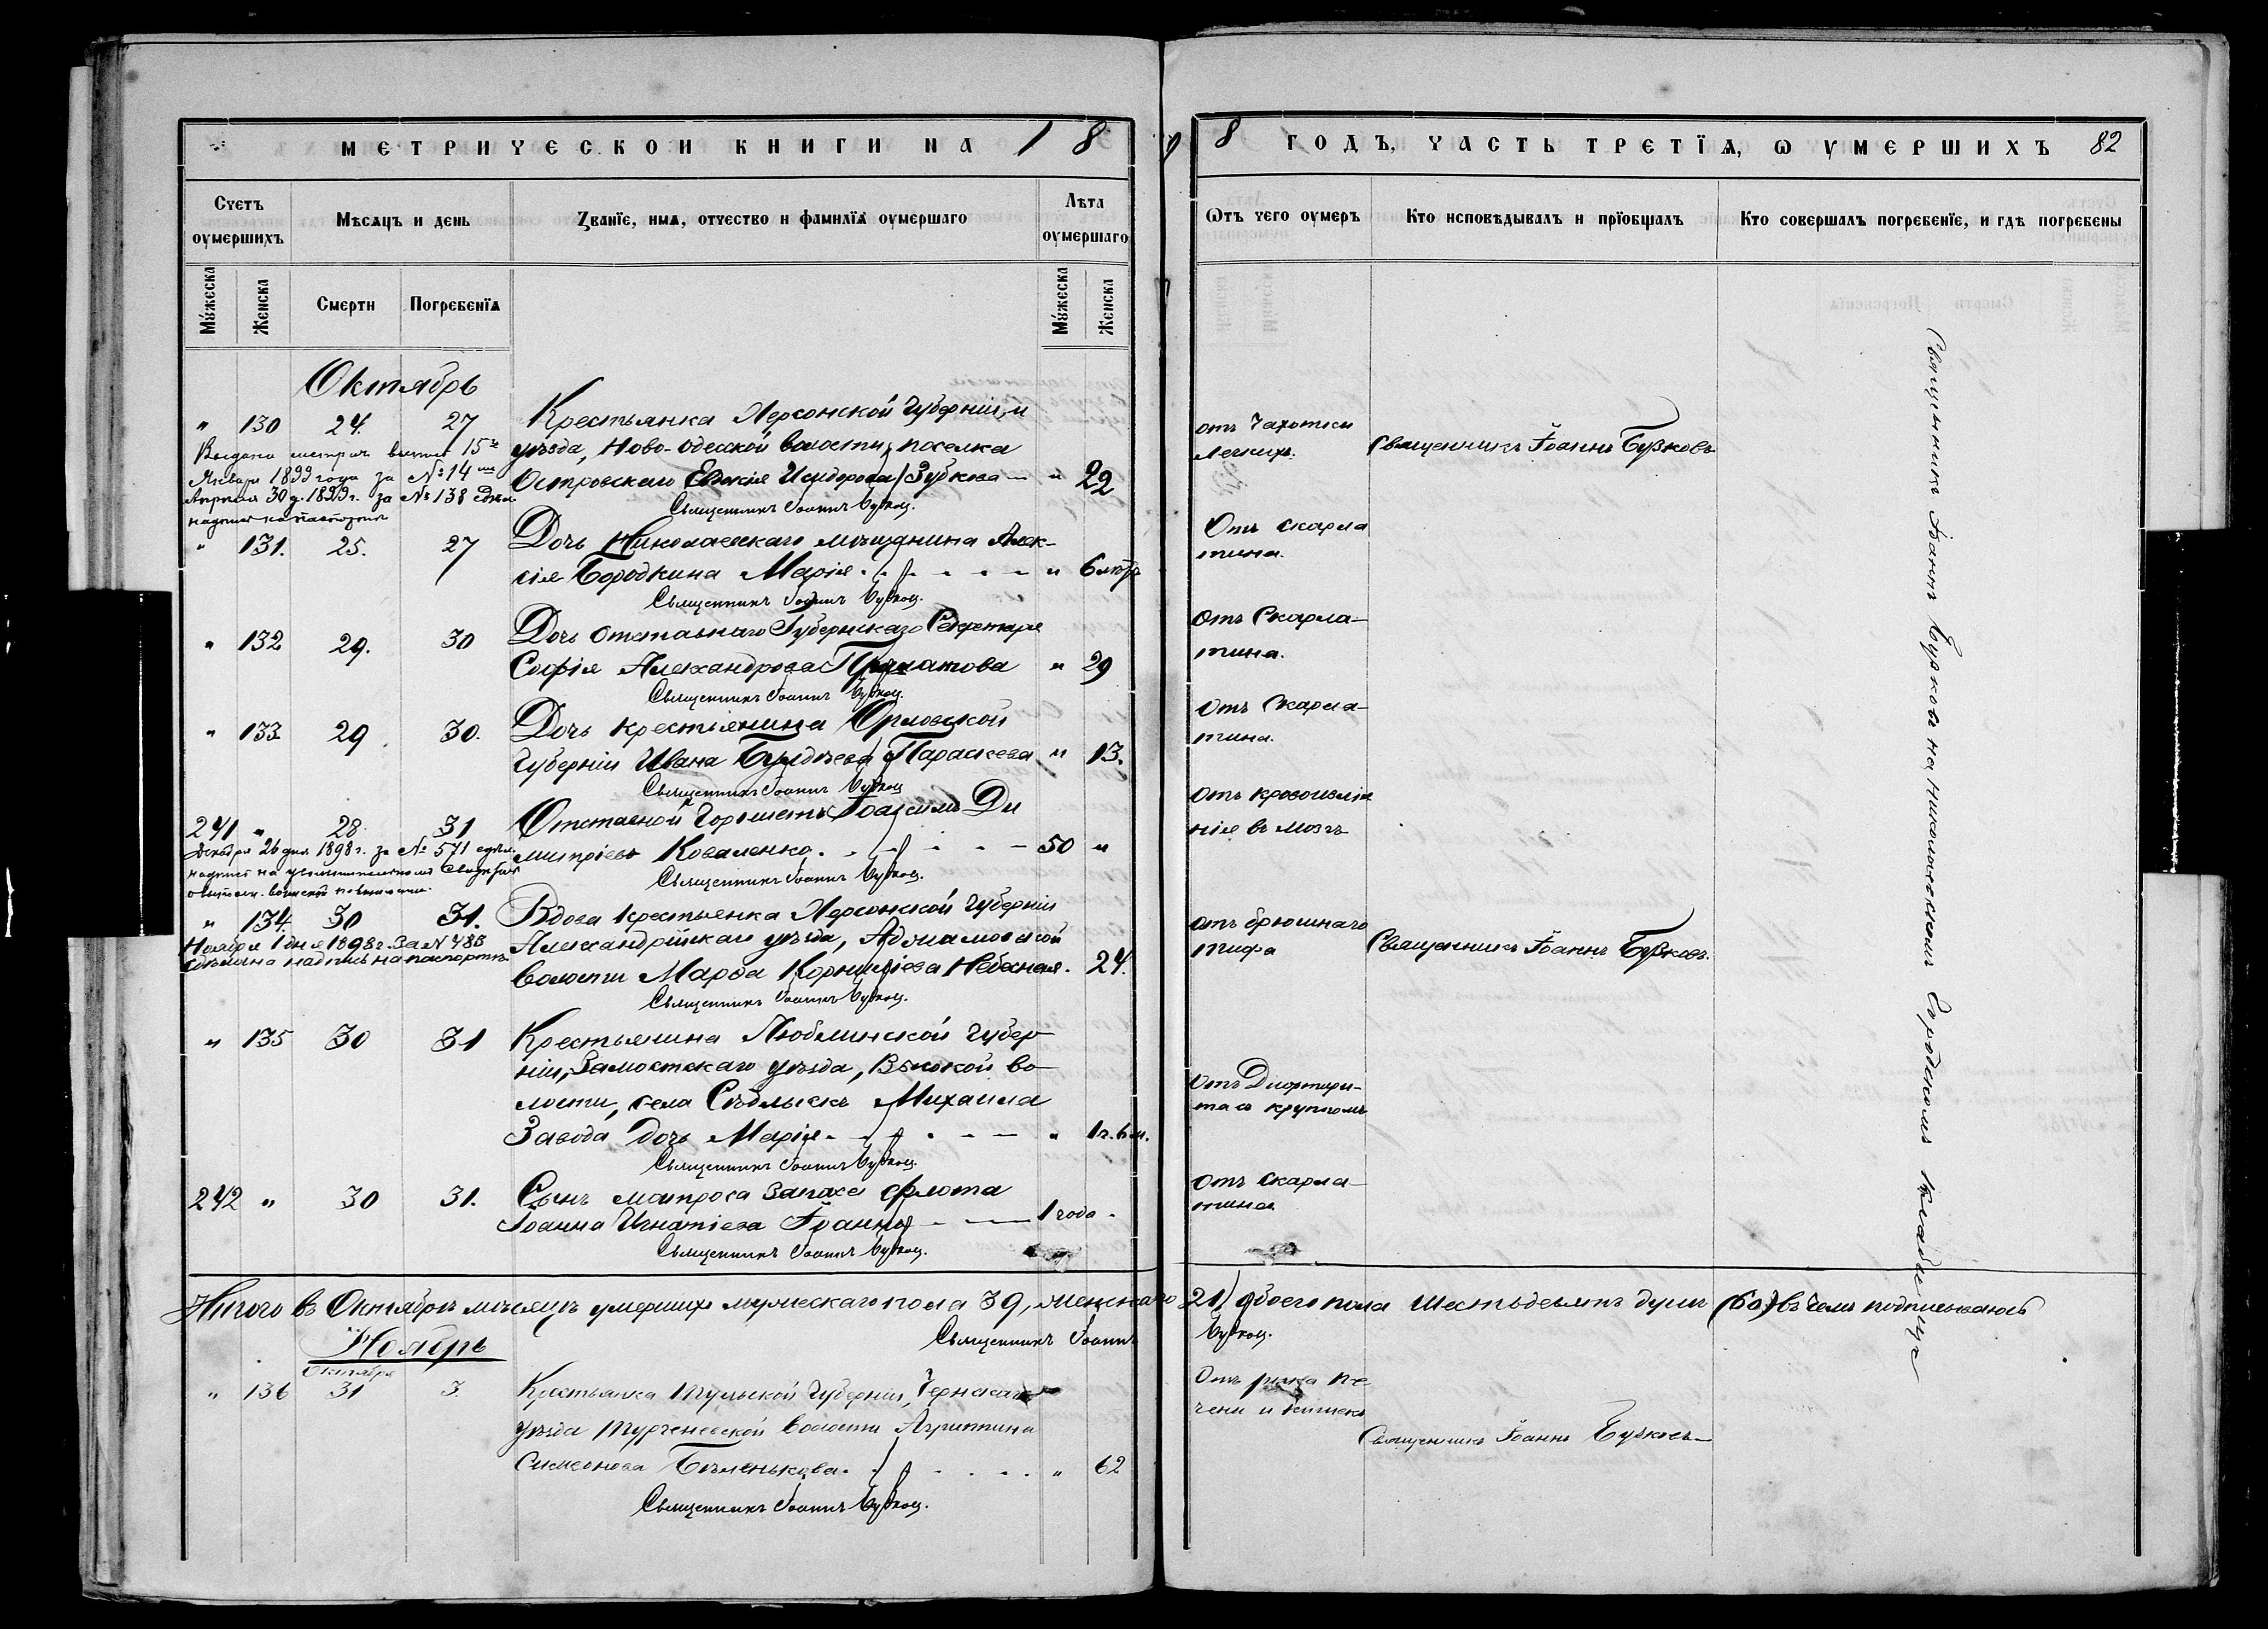 МЕТРИЧЕСКОЙ КНИГИ НА 1898 ГОДЪ, ЧАСТЬ ТРЕТЇѦ, Ѡ ОУМЕРШИХЪ 82
Счетъ оумершихъ
Мѣсяцъ и день
Званїе, имѧ, отчество и фамилїѧ оумершаго
Лѣта оумершаго
Ѿтъ чего оумеръ
Кто исповѣдывалъ и прїобщалъ
Кто совершалъ погребенїе, и гдѣ погребены
Мужеска
Женска
Смерти
Погребенїѧ
Мужеска
Женска
Октябрь
" 130 24. 27 Крестьянка Херсонской губерніи, и
уѣзда, Ново-Одесской волости, поселка
Островскаго Евдокія Исидорова Зубкова — " 22
Священникъ Іоаннъ Бурковъ.
отъ чахотки
легкихъ.
Священникъ Іоаннъ Бурковъ
Января 1899 года за № 14
Апрѣля 30 д. 1899 г. за № 138
надпись на паспортѣ
" 131. 25. 27 Дочь Николаевскаго мѣщанина Алек-
сія Бородкина Марія " 6
Священникъ Іоаннъ Бурковъ.
Отъ скарла
тина.
" 132 29. 30 Дочь отставнаго Губернскаго Секретаря
Софія Александрова " 29
Священникъ Іоаннъ Бурковъ.
Отъ Скарла-
тина.
" 133 29 30. Дочь крестьянина Орловской
губерніи Ивана Параскева " 13.
Священникъ Іоаннъ Бурковъ
Отъ Скарла-
тина.
241 " 28 31 Отставной Іоакимъ Ди
митріевъ Коваленко 50 "
Священникъ Іоаннъ Бурковъ.
Отъ кровоизлія
нія въ мозгъ
Декабря 26 дня 1898 г. за № 571
надпись на
" 134. 30 31. Вдова крестьянка Херсонской губерніи
Александрійскаго уѣзда,
волости Марѳа Корниліева Небесная. 24.
Священникъ Іоаннъ Бурковъ.
отъ брюшнаго
тифа
Священникъ Іоаннъ Бурковъ.
Ноября 1 дня 1898 г. за № 488
сдѣлана надпись на паспортѣ
" 135 30 31 Крестьянина Люблинской губер
ніи, Замостскаго уѣзда, Высокой во-
лости, села Михаила
Завода дочь Марія " 1 г. 6 м.
Священникъ Іоаннъ Бурковъ.
Отъ
крупомъ
242 " 30 31. Сынъ матроса запаса флота
Іоанна Игнатіева Іоаннъ 1 года
Священникъ Іоаннъ Бурковъ.
отъ скарла-
тина
Итого въ Октябрѣ мѣсяцѣ умершихъ мужескаго пола 39, женскаго 21, обоего пола шестьдесятъ душъ (60) въ чемъ подписываюсь
Священникъ Іоаннъ Бурковъ.
Ноябрь
Октября
" 136 31 3. Крестьянка Тульской губерніи, Чернскаго
уѣзда Тургеневской волости Агриппина
Симеонова Бѣленькова. " 62
Священникъ Іоаннъ Бурковъ.
Отъ рака пе
чени и кишекъ
Священникъ Іоаннъ Бурковъ
Священникъ Іоаннъ Бурковъ на Николаевскомъ Городскомъ кладбищѣ